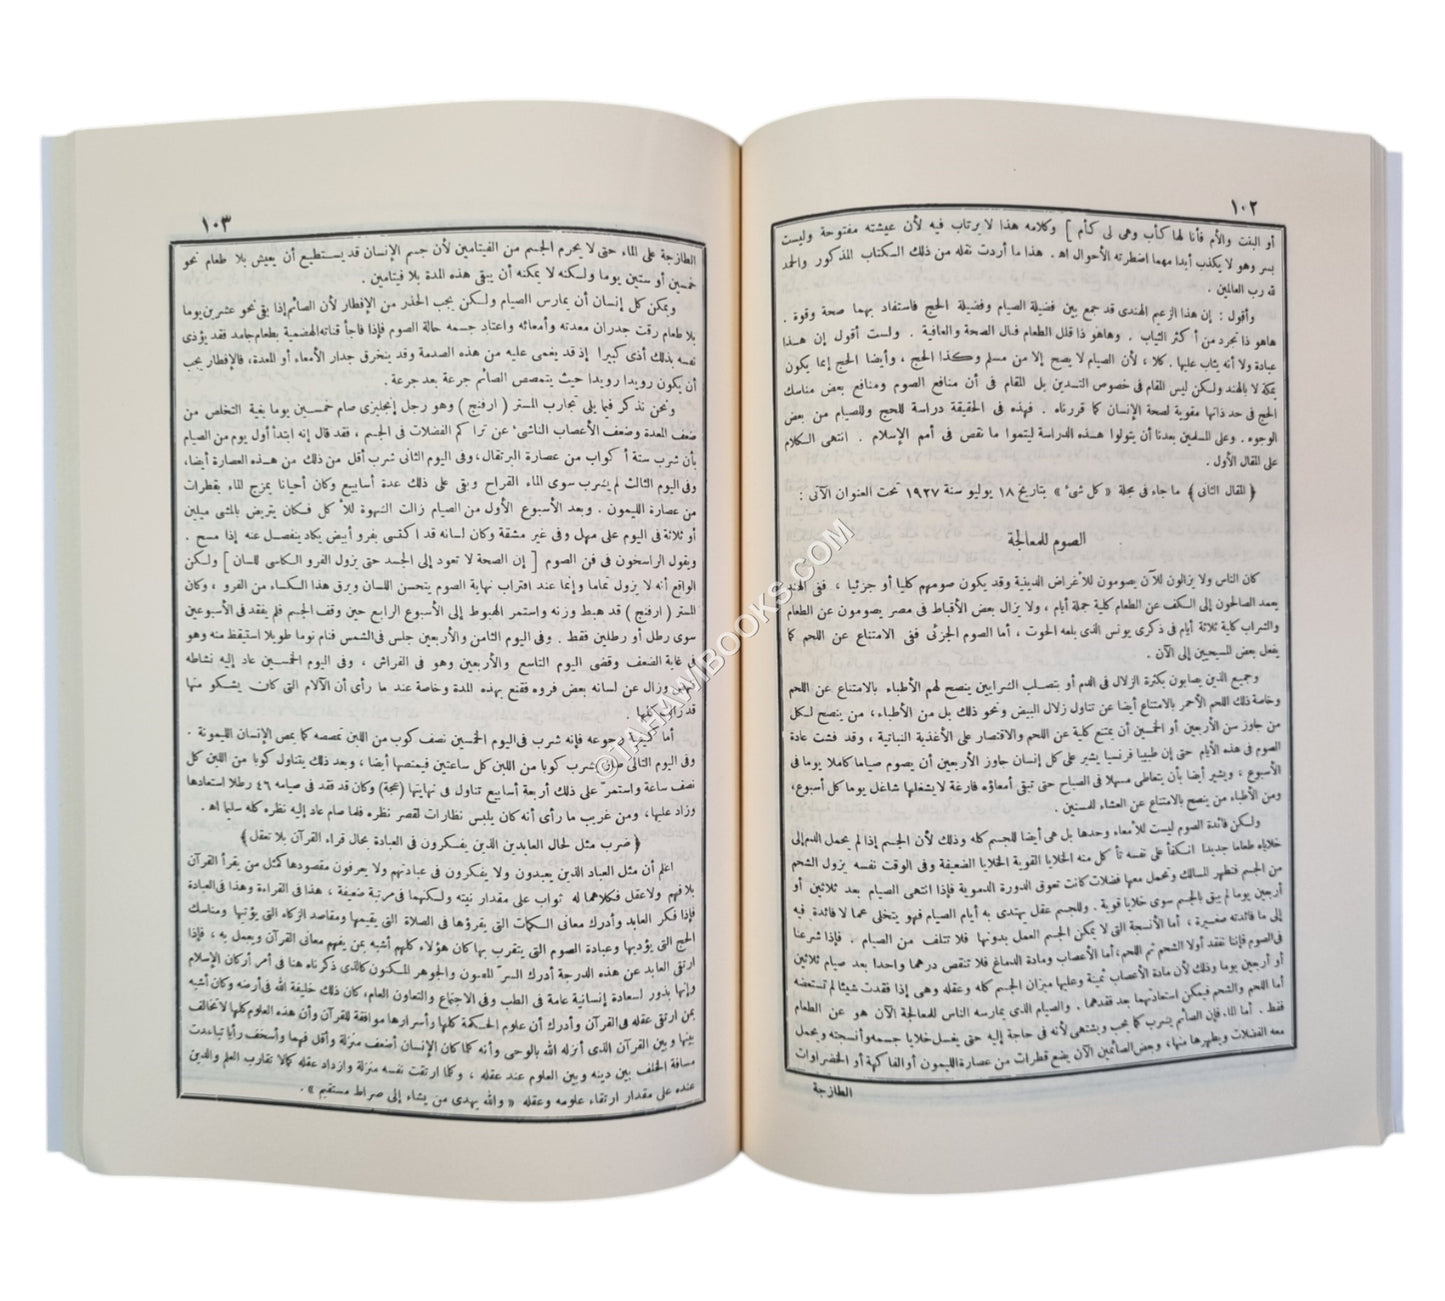 ١٠٢
أو البنت والأم فأنا لها كأب وهى لى كأم ] وكلامه هذا لا يرتاب فيه لأن عيشته مفتوحة وليست
بسر وهو لا يكذب أبدا مهما اضطرته الأحوال اه . هذا ما أردت نقله من ذلك الكتاب المذكور والحمد
لله رب العالمين .
وأقول : إن هذا الزعيم الهندى قد جمع بين فضيلة الصيام وفضيلة الحج فاستفاد بهما صحة وقوة .
هاهو ذا تجرد من أكثر الثياب . وهاهو ذا قلل الطعام فنال الصحة والعافية . ولست أقول إن هذا
عبادة ولا أنه يثاب عليها . كلا ، لأن الصيام لا يصح إلا من مسلم وكذا الحج ، وأيضا الحج إنما يكون
بمكة لا بالهند ولكن ليس المقام فى خصوص التدين بل المقام فى أن منافع الصوم ومنافع بعض مناسك
الحج فى حد ذاتها مقوية لصحة الإنسان كما قررناه . فهذه فى الحقيقة دراسة للحج وللصيام من بعض
الوجوه . وعلى المسلمين بعدنا أن يتولوا هذه الدراسة ليتموا ما نقص فى أمم الإسلام . انتهى الكلام
على المقال الأول .
﴿ المقال الثانى ﴾ ما جاء فى مجلة « كل شىء » بتاريخ ١٨ يوليو سنة ١٩٢٧ تحت العنوان الآتى :
الصوم للمعالجة
كان الناس ولا يزالون للآن يصومون للأغراض الدينية وقد يكون صومهم كليا أو جزئيا ، ففى الهند
يعمد الصالحون إلى الكف عن الطعام كلية جملة أيام ، ولا يزال بعض الأقباط فى مصر يصومون عن الطعام
والشراب كلية ثلاثة أيام فى ذكرى يونس الذى بلعه الحوت ، أما الصوم الجزئى ففى الامتناع عن اللحم كما
يفعل بعض المسيحيين إلى الآن .
وجميع الذين يصابون بكثرة الزلال فى الدم أو بتصلب الشرايين ينصح لهم الأطباء بالامتناع عن اللحم
وخاصة ذلك اللحم الأحمر بالامتناع أيضا عن تناول زلال البيض ونحو ذلك بل من الأطباء ، من ينصح لكل
من جاوز سن الأربعين أو الخمسين أن يمتنع كلية عن اللحم والاقتصار على الأغذية النباتية ، وقد فشت عادة
الصوم فى هذه الأيام حتى إن طبيبا فرنسيا يشير على كل إنسان جاوز الأربعين أن يصوم صياما كاملا يوما فى
الأسبوع ، ويشير أيضا بأن يتعاطى مسهلا فى الصباح حتى تبقى أمعاؤه فارغة لا يشغلها شاغل يوما كل أسبوع،
ومن الأطباء من ينصح بالامتناع عن العشاء للمسنين .
ولكن فائدة الصوم ليست للأمعاء وحدها بل هى أيضا للجسم كله وذلك لأن الجسم إذا لم يحمل الدم إلى
خلاياه طعاما جديدا انكفأ على نفسه تأكل منه الخلايا القوية الخلايا الضعيفة وفى الوقت نفسه يزول الشحم
من الجسم فتطهر المسالك وتحمل معها فضلات كانت تعوق الدورة الدموية فإذا انتهى الصيام بعد ثلاثين أو
أربعين يوما لم يبق بالجسم سوى خلايا قوية . وللجسم عقل يهتدى به أيام الصيام فهو يتخلى عما لا فائدة فيه
إلى ما فائدته صغيرة ، أما الأنسجة التى لا يمكن الجسم العمل بدونها فلا تتلف من الصيام . فإذا شرعنا
فى الصوم فإننا نفقد أولا الشحم ثم اللحم، أما الأعصاب ومادة الدماغ فلا تنقص درهما واحدا بعد صيام ثلاثين
أو أربعين يوما وذلك لأن مادة الأعصاب ثمينة وعليها ميزان الجسم كله وعقله وهى إذا فقدت شيئا لم تستعضه
أما اللحم والشحم فيمكن استعادتهما بعد فقدهما . والصيام الذى يمارسه الناس للمعالجة الآن هو عن الطعام
فقط . أما الماء فإن الصائم يشرب كما يحب ويشتهى لأنه فى حاجة إليه حتى يغسل خلايا جسمه وأنسجته ويحمل
معه الفضلات ويطهرها منها، وبعض الصائمين الآن يضع قطرات من عصارة الليمون أو الفاكهة أو الخضراوات
الطازجة
١٠٣
الطازجة على الماء حتى لا يحرم الجسم من الفيتامين لأن جسم الإنسان قد يستطيع أن يعيش بلا طعام نحو
خمسين أو ستين يوما ولكنه لا يمكنه أن يبقى هذه المدة بلا فيتامين .
ويمكن كل إنسان أن يمارس الصيام ولكن يجب الحذر من الإفطار لأن الصائم إذا بقى نحو عشرين يوما
بلا طعام رقت جدران معدته وأمعائه واعتاد جسمه حالة الصوم فإذا فاجأ قناته الهضمية بطعام جامد فقد يؤذى
نفسه بذلك أذى كبيرا إذ قد يغمى عليه من هذه الصدمة وقد ينخرق جدار الأمعاء أو المعدة، فالإفطار يجب
أن يكون رويدا رويدا حيث يتمصص الصائم جرعة بعد جرعة .
ونحن نذكر فيما يلى تجارب المستر ( ارفنج ) وهو رجل إنجليزى صام خمسين يوما بغية التخلص من
ضعف المعدة وضعف الأعصاب الناشىء عن تراكم الفضلات فى الجسم ، فقد قال إنه ابتدأ أول يوم من الصيام
بأن شرب ستة أكواب من عصارة البرتقال، وفى اليوم الثانى شرب أقل من ذلك من هذه العصارة أيضا،
وفى اليوم الثالث لم يشرب سوى الماء القراح وبقى على ذلك عدة أسابيع وكان أحيانا يمزج الماء بقطرات
من عصارة الليمون . وبعد الأسبوع الأول من الصيام زالت الشهوة للأكل فكان يتريض بالمشى ميلين
أو ثلاثة فى اليوم على مهل وفى غير مشقة وكان لسانه قد اكتسى بفرو أبيض يكاد ينفصل عنه إذا مسح .
ويقول الراسخون فى فن الصوم [ إن الصحة لا تعود إلى الجسد حتى يزول الفرو الكاسى للسان ] ولكن
الواقع أنه لا يزول تماما وإنما عند اقتراب نهاية الصوم يتحسن اللسان ويرق هذا الكساء من الفرو ، وكان
المستر ( ارفنج ) قد هبط وزنه واستمر الهبوط إلى الأسبوع الرابع حين وقف الجسم فلم يفقد فى الأسبوعين
سوى رطل أو رطلين فقط . وفى اليوم الثامن والأربعين جلس فى الشمس فنام نوما طويلا استيقظ منه وهو
فى غاية الضعف وقضى اليوم التاسع والأربعين وهو فى الفراش ، وفى اليوم الخمسين عاد إليه نشاطه
وزال عن لسانه بعض فروه فقنع بهذه المدة وخاصة عند ما رأى أن الآلام التى كانت يشكو منها
قد زالت
أما كيفية رجوعه فإنه شرب فى اليوم الخمسين نصف كوب من اللبن تمصصه كما يمص الإنسان الليمونة .
وفى اليوم التالى صار يشرب كوبا من اللبن كل ساعتين فيمتصها أيضا ، وبعد ذلك يتناول كوبا من اللبن كل
نصف ساعة واستمر على ذلك أربعة أسابيع تناول فى نهايتها (عجة) وكان قد فقد فى صيامه ٤٦ رطلا استعادها
وزاد عليها، ومن غريب ما رأى أنه كان يلبس نظارات لقصر نظره فلما صام عاد إليه نظره كله سليما اه .
﴿ ضرب مثل لحال العابدين الذين يفكرون فى العبادة بحال قراء القرآن بلا تعقل ﴾
اعلم أن مثل العباد الذين يعبدون ولا يفكرون فى عبادتهم ولا يعرفون مقصودها كمثل من يقرأ القرآن
بلا فهم ولا عقل فكلاهما له ثواب على مقدار نيته ولكنهما فى مرتبة ضعيفة ، هذا فى القراءة وهذا فى العبادة
فإذا فكر العابد وأدرك معانى الكلمات التى يقرؤها فى الصلاة التى يقيمها ومقاصد الزكاه التى يؤتيها ومناسك
الحج التى يؤديها وعبادة الصوم التى يتقرب بها كان هؤلاء كلهم أشبه بمن يفهم معانى القرآن ويعمل به ، فإذا
ارتقى العابد عن هذه الدرجة أدرك السر المصون والجوهر المكنون كالذى ذكرناه هنا فى أمر أركان الإسلام
وإنها بذور لسعادة إنسانية عامة فى الطب وفى الاجتماع والتعاون العام، كان ذلك خليفة الله فى أرضه وكان أشبه
بمن ارتقى عقله فى القرآن وأدرك أن علوم الحكمة كلها وأسرارها موافقة للقرآن وأن هذه العلوم كلها لا تخالف
بينها وبين القرآن الذى أنزله الله بالوحى وأنه كلما كان الإنسان أضعف منزلة وأقل فهما وأسخف رأيا تباعدت
مسافة الخلف بين دينه وبين العلوم عند عقله ، وكلما ارتقت نفسه منزلة وازداد عقله كمالا تقارب العلم والدين
عنده على مقدار ارتقاء علومه وعقله « والله يهدى من يشاء إلى صراط مستقيم » .
©TAHAWIBOOKS.COM